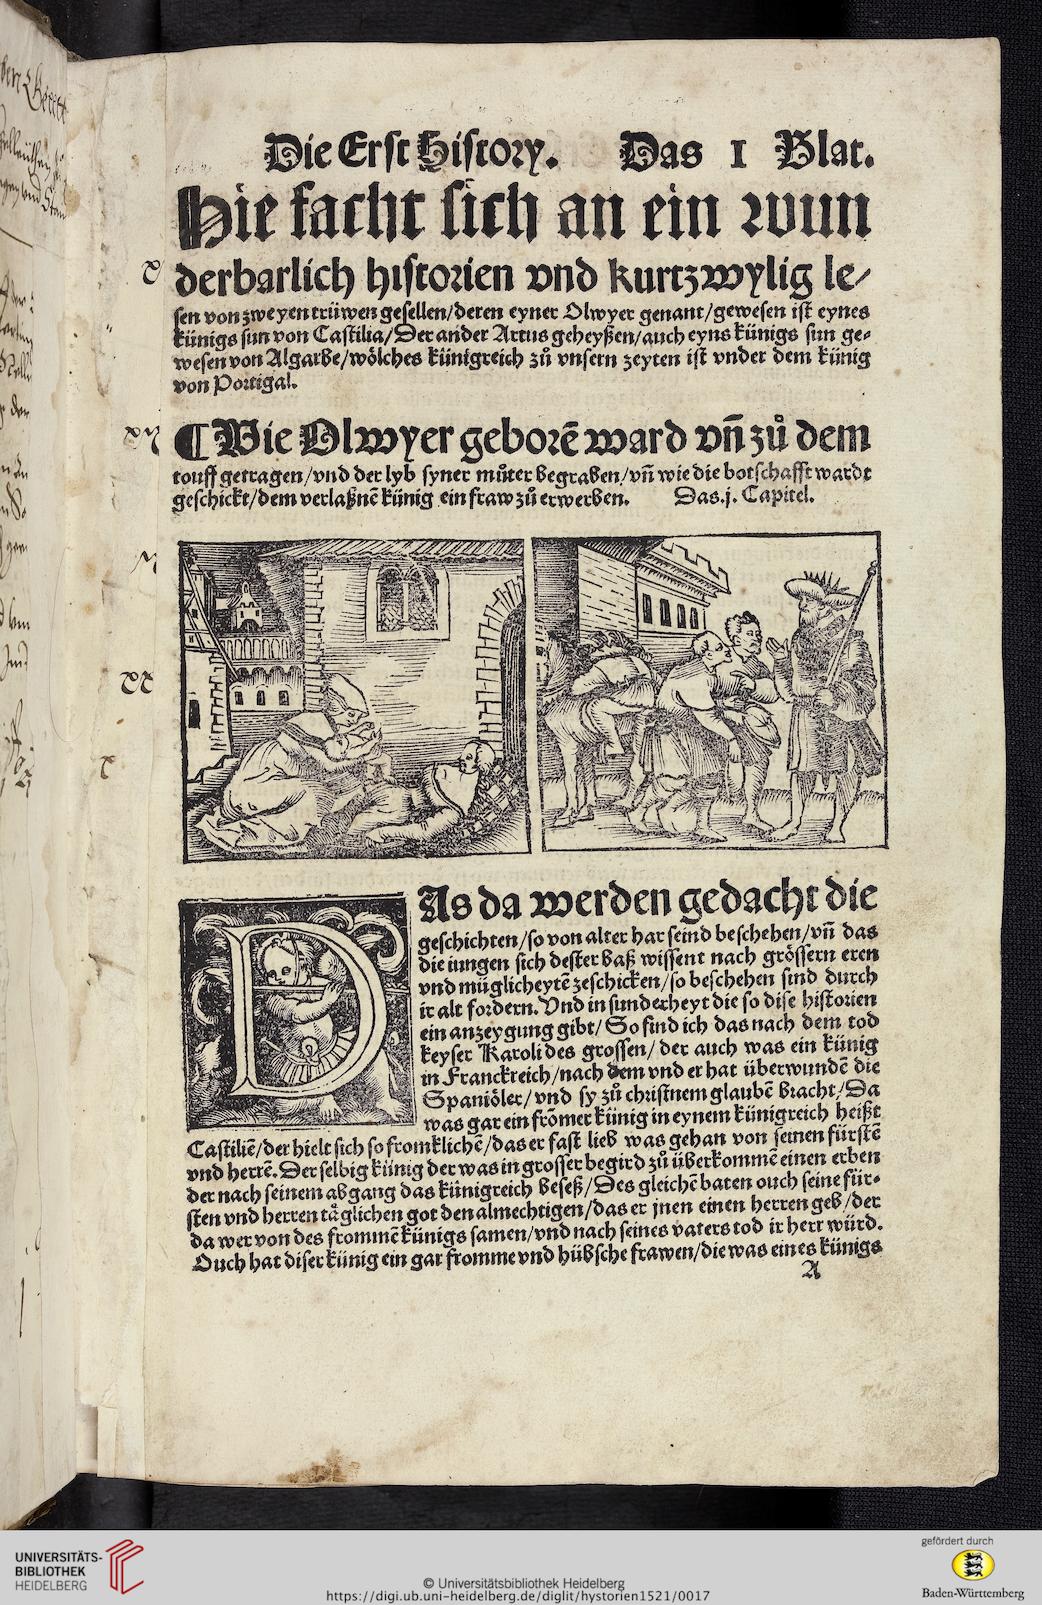 Die Erst History. Das I Blat.
Hie facht sich an ein wun
derbarlich historien vnd kurtzwylig le/
sen von zweyen trüwen gesellen/deren eyner Olwyer genant/gewesen ist eynes
künigs sun von Castilia/Der ander Artus geheyßen/auch eyns künigs sun ge-
wesen von Algarbe/wölches künigreich zů vnsern zeyten ist vnder dem künig
von Portigal.
¶ Wie Olwyer geborē ward vn̄ zů dem
touff getragen/vnd der lyb syner můter begraben/vn̄ wie die botschafft wardt
geschickt/dem verlaßnē künig ein fraw zů erwerben. Das.j. Capitel.
DAs da werden gedacht die
geschichten/so von alter har seind beschehen/vn̄ das
die iungen sich dester baß wissent nach grössern eren
vnd müglicheytē zeschicken/so beschehen sind durch
ir alt fordern. Vnd in sunderheyt die so dise historien
ein anzeygung gibt/ So find ich das nach dem tod
keyser Karoli des grossen/ der auch was ein künig
in Franckreich/nach dem vnd er hat überwundē die
Spaniöler/vnd sy zů christnem glaubē bracht/Da
was gar ein frōmer künig in eynem künigreich heißt
Castiliē/der hielt sich so fromklichē/das er fast lieb was gehan von seinen fürstē
vnd herrē. Der selbig künig der was in grosser begird zů überkommē einen erben
der nach seinem abgang das künigreich beseß/Des gleichē baten ouch seine für-
sten vnd herren täglichen got den almechtigen/das er jnen einen herren geb/der
da wer von des frommē künigs samen/vnd nach seines vaters tod ir herr würd.
Ouch hat diser künig ein gar fromme vnd hübsche frawen/die was eines künigs
A
UNIVERSITÄTS-
BIBLIOTHEK
HEIDELBERG
© Universitätsbibliothek Heidelberg
https://digi.ub.uni-heidelberg.de/diglit/hystorien1521/0017
gefördert durch
Baden-Württemberg